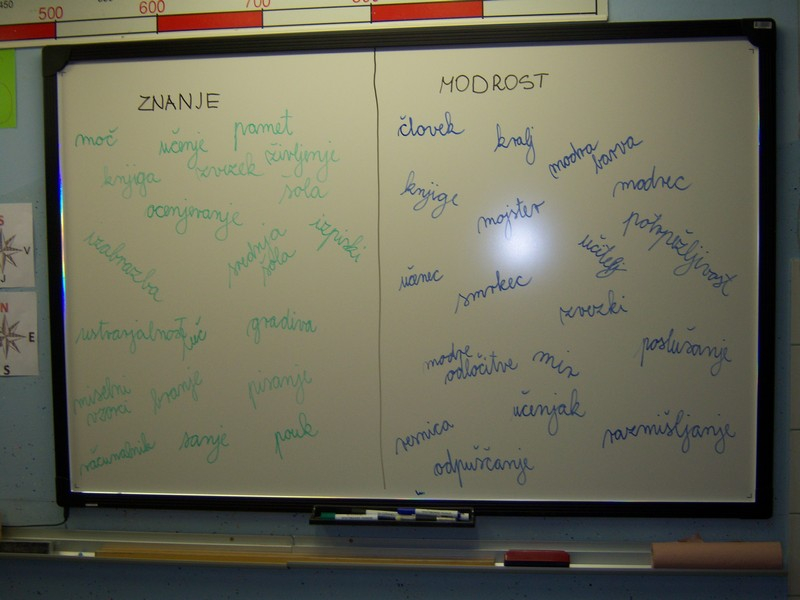 500 600 700 800
ZNANJE
moč učenje pamet
knjiga zvezek življenje
šola
ocenjevanje
izobrazba srednja šola izpiski
ustvarjalnost luč gradiva
miselni vzorci branje pisanje
računalnik sanje pouk
MODROST
človek kralj modra barva
knjige modrec
mojster potrpežljivost
učitelj
učenec smrkec
zvezki
modre odločitve mir poslušanje
učenjak
resnica razmišljanje
odpuščanje
S
V
J
N
E
S